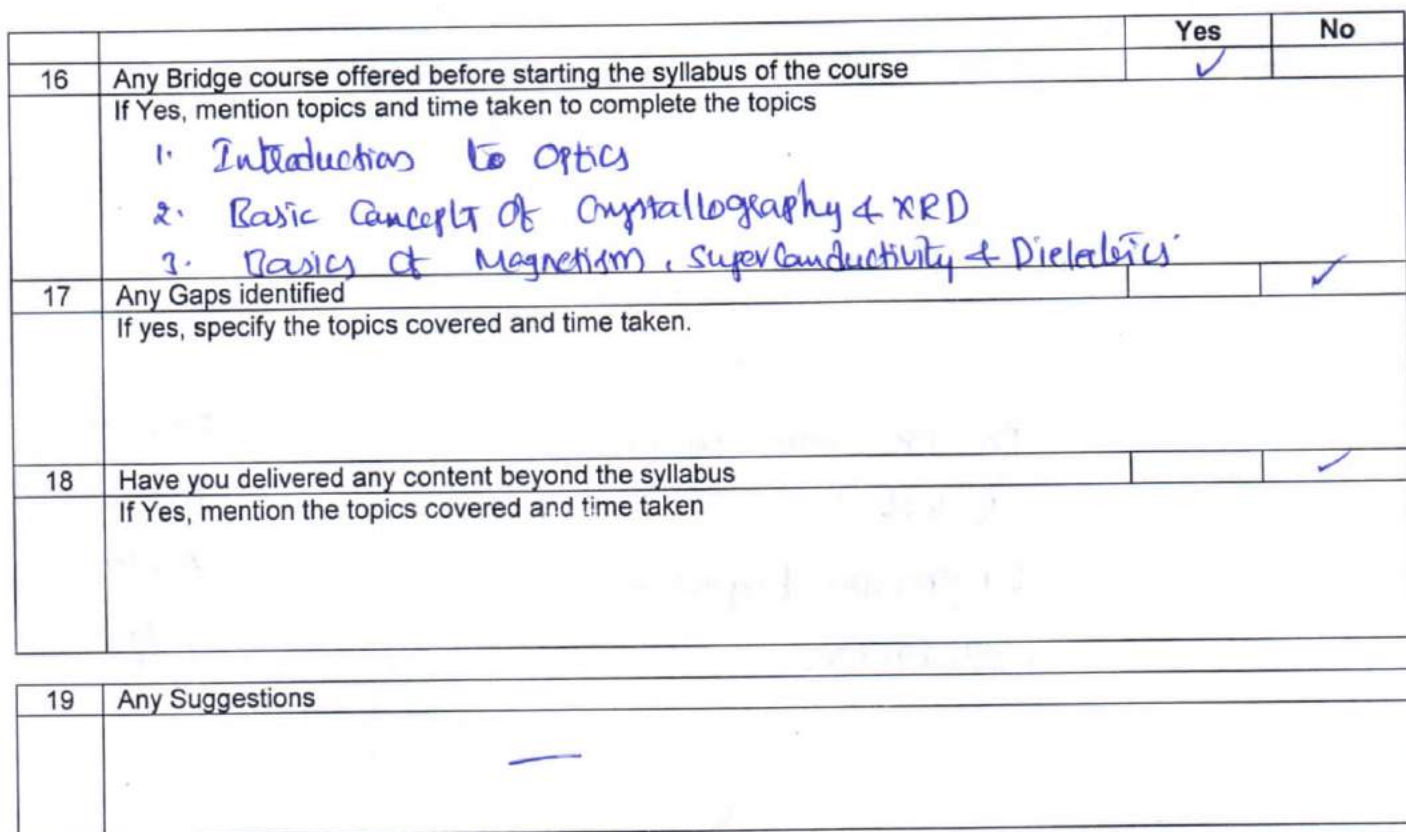 Yes No
16 Any Bridge course offered before starting the syllabus of the course ✓
If Yes, mention topics and time taken to complete the topics
1. Introduction to Optics
2. Basic Concepts Of Crystallography & XRD
3. Basics Of Magnetism, Superconductivity & Dielectrics
17 Any Gaps identified ✓
If yes, specify the topics covered and time taken.
18 Have you delivered any content beyond the syllabus ✓
If Yes, mention the topics covered and time taken
19 Any Suggestions
—